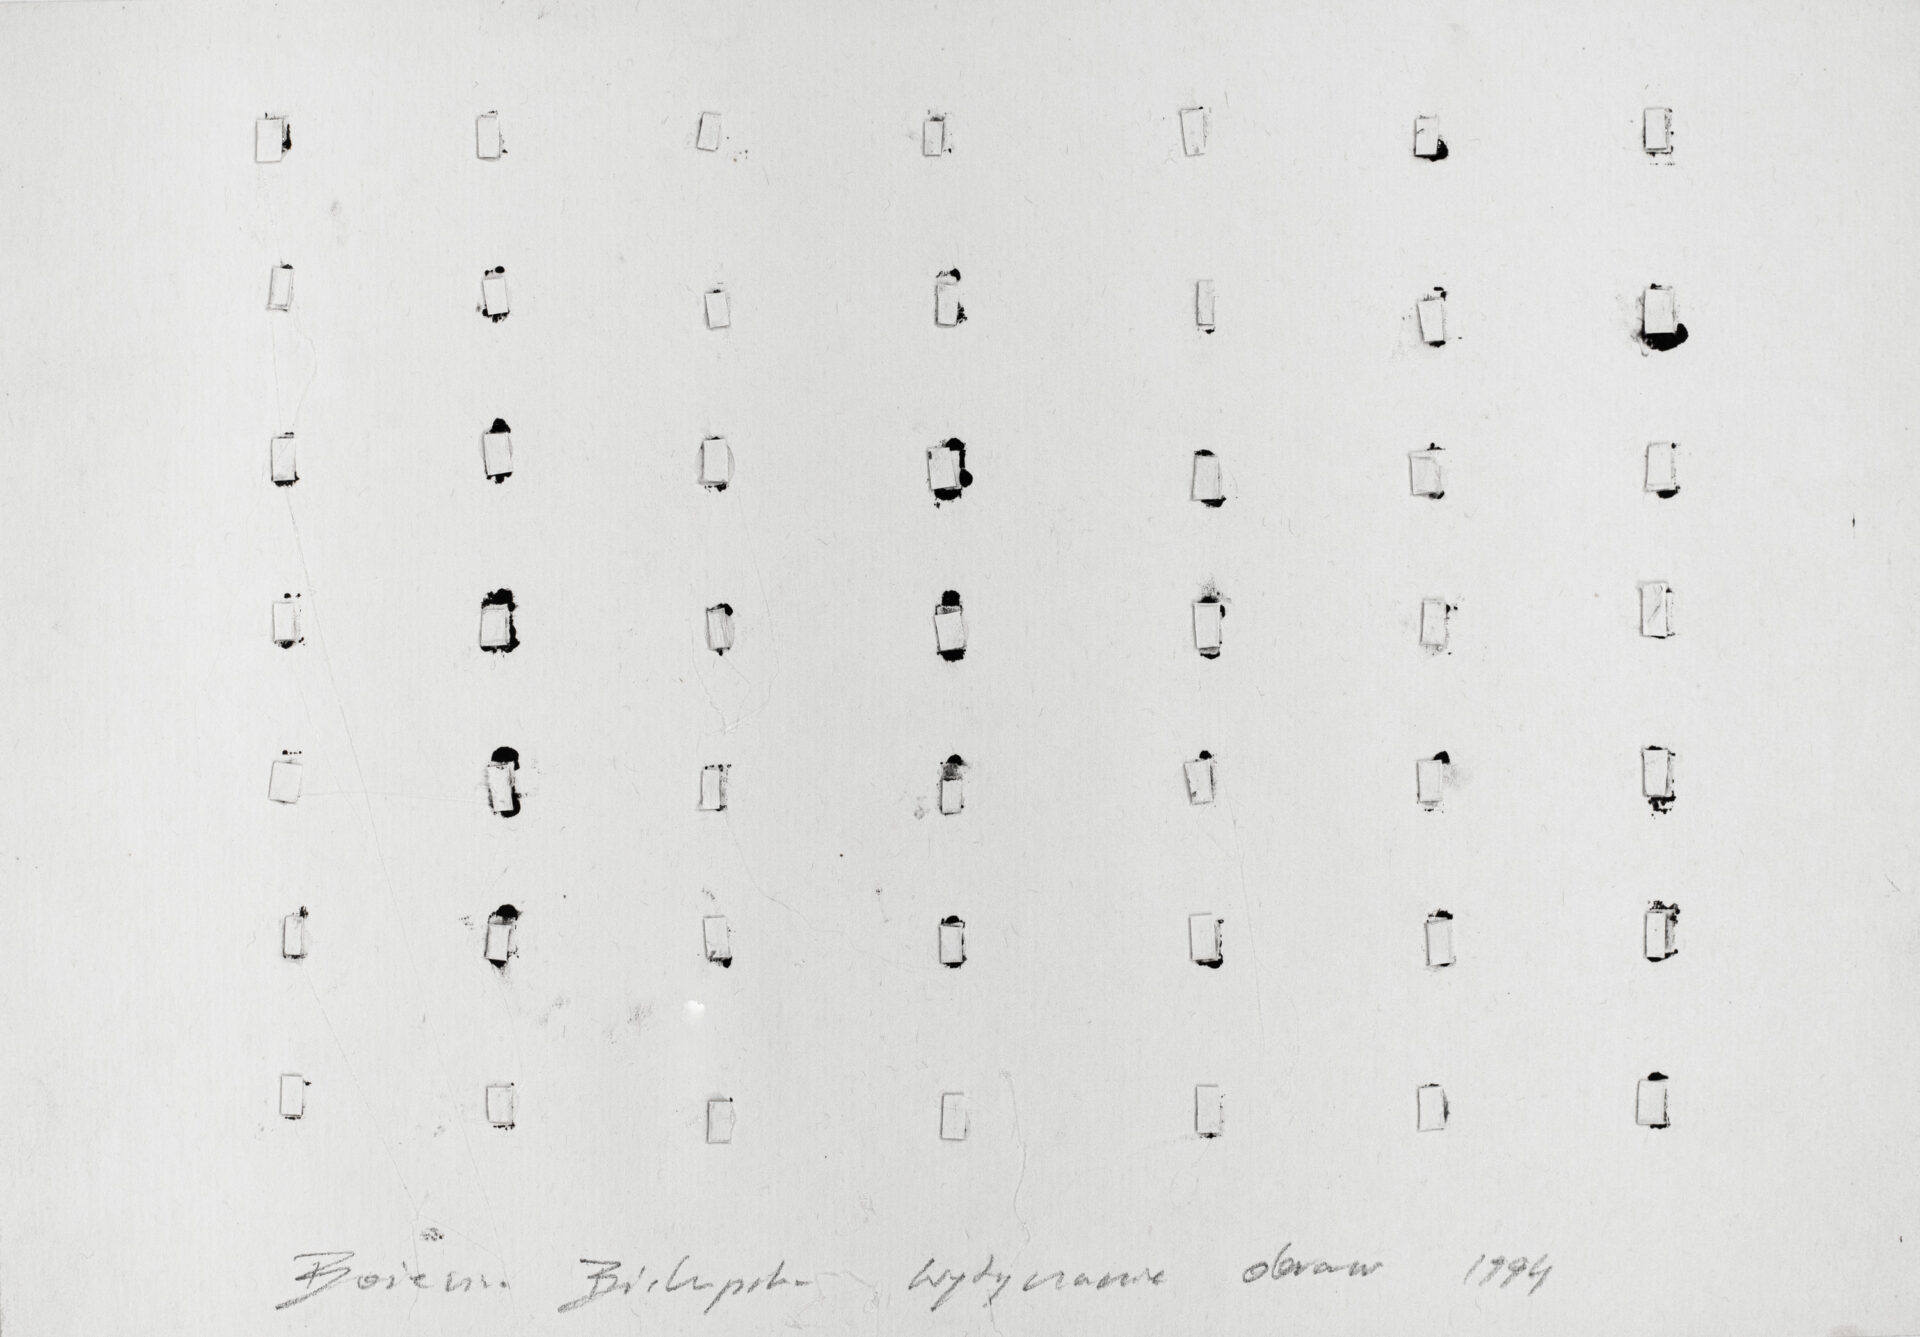 Bożena Biskupska wytyczanie obrazu 1994